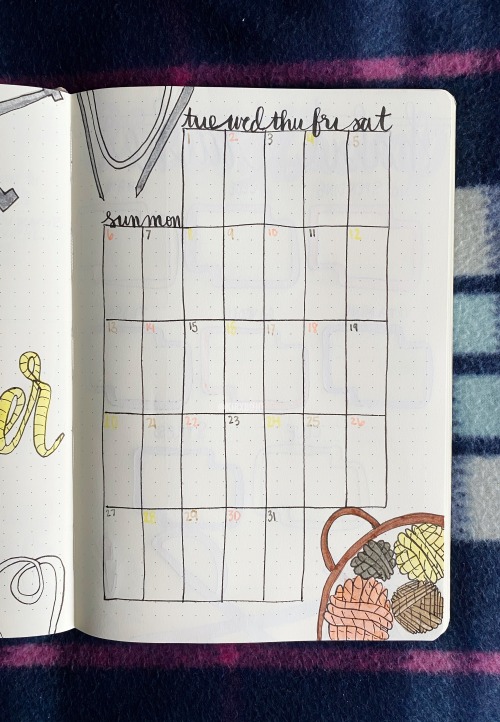 tue wed thu fri sat
1 2 3 4 5
sun mon
6 7 8 9 10 11 12
13 14 15 16 17 18 19
20 21 22 23 24 25 26
27 28 29 30 31
er